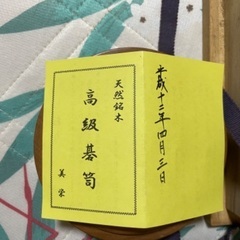 平成十二年四月三日
天然銘木
高級碁笥
美栄